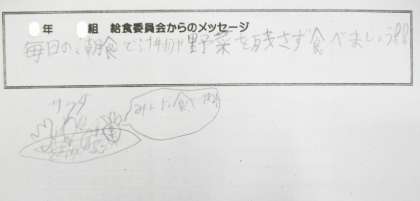 年 組 給食委員会からのメッセージ
毎日の朝食で野菜を残さず食べましょう!!
サラダ
みんな食べてね